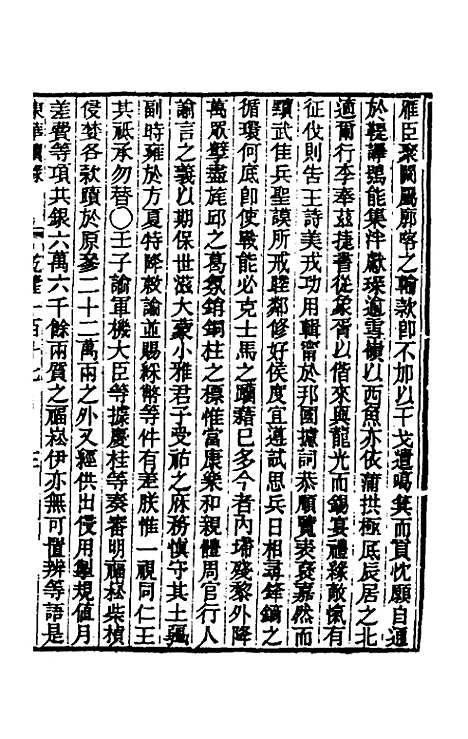 雁臣聚闕鳳廓喀之輸款即不加以干戈遣鳴箕而貢忱願自通
於鞮譯鴞能集泮獻琛逾雪嶺以西魚亦依蒲拱極底辰居之北
適爾行李奉茲捷書從象胥以偕來與龍光而錫宴禮緣敵愾有
征伐則告王詩美戎功用輯甯於邦國據詞恭順覽表裒嘉然而
黷武佳兵聖謨所戒睦鄰修好侯度宜遵試思兵日相尋鋒鏑之
循環何底即使戰能必克士馬之躪藉已多今者內埽殘黎外降
萬眾壁盡旄邱之葛氛銷銅柱之標惟當康樂和親體周官行人
諭言之義以期保世滋大蒙小雅君子受祜之庥務慎守其土疆
副時雍於方夏特降敕諭並賜綵幣等件有差朕惟一視同仁王
其祗承勿替○壬子諭軍機大臣等據慶桂等奏審明福崧柴楨
侵婪各款贓於原參二十二萬兩之外又經供出侵用掣規值月
差費等項共銀六萬六千餘兩質之福崧伊亦無可置辨等語是
東華續錄　乾隆一百十七　三